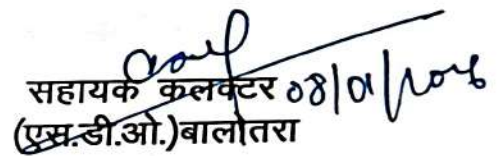 सहायक कलक्टर 08/01/2026
(एस.डी.ओ.)बालोतरा